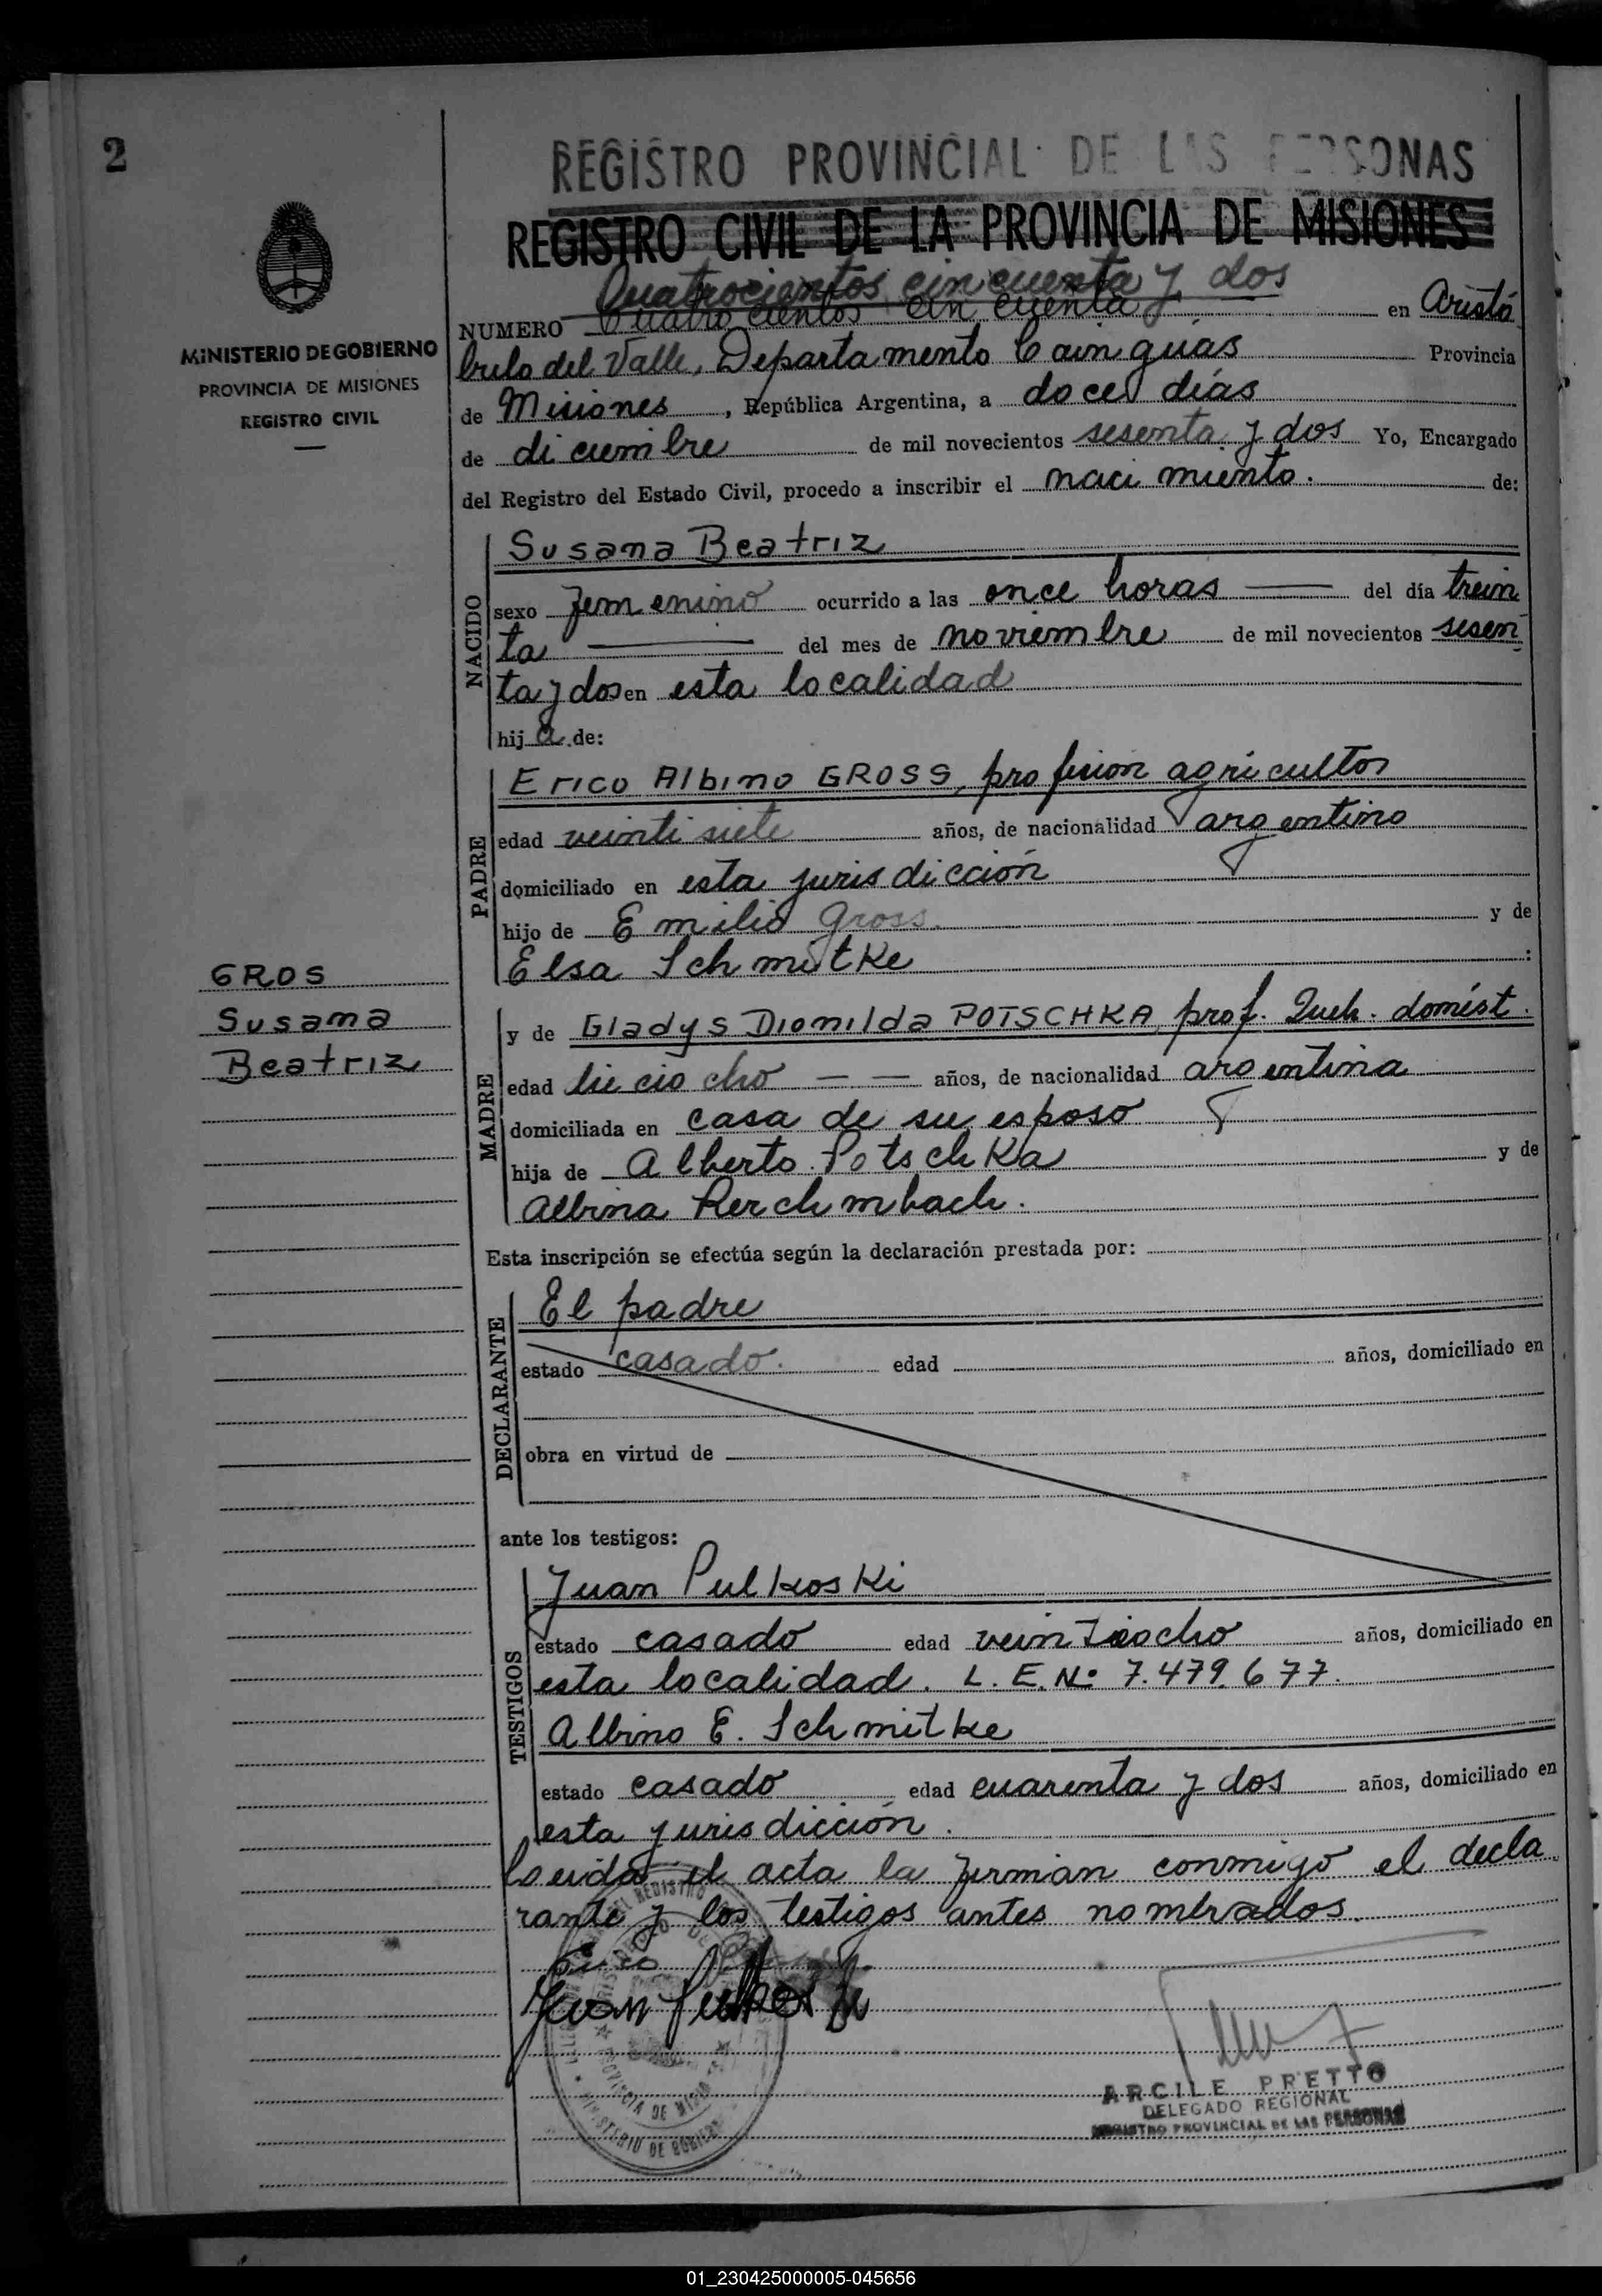 2
REGISTRO PROVINCIAL DE LAS PERSONAS
REGISTRO CIVIL DE LA PROVINCIA DE MISIONES
Quatrocientos cincuenta y dos
NUMERO Cuatro cientos cin cuenta y en Aristó
bulo del Valle, Departamento Cainguás Provincia
de Misiones, República Argentina, a doce días
de diciembre de mil novecientos sesenta y dos Yo, Encargado
del Registro del Estado Civil, procedo a inscribir el nacimiento. de:
MINISTERIO DE GOBIERNO
PROVINCIA DE MISIONES
REGISTRO CIVIL
NACIDO
Susana Beatriz
sexo femenino ocurrido a las once horas — del día trein
ta — del mes de noviembre de mil novecientos sesen
ta y dos en esta localidad
hij a de:
PADRE
Erico Albino GROSS, profesion agricultor
edad veintisiete años, de nacionalidad argentino
domiciliado en esta jurisdicción
hijo de Emilio Gross. y de
Elsa Schmitke :
GROS
Susana
Beatriz
MADRE
y de Gladys Dionilda POTSCHKA, prof. Queh. domést.
edad dieciocho — — años, de nacionalidad argentina
domiciliada en casa de su esposo
hija de Alberto Potschka y de
Albina Rerchmbach.
Esta inscripción se efectúa según la declaración prestada por:
DECLARANTE
El padre
estado casado. edad años, domiciliado en
obra en virtud de
ante los testigos:
TESTIGOS
Juan Pulkoski
estado casado edad veintiocho años, domiciliado en
esta localidad. L. E. Nº 7.479.677.
Albino E. Schmitke
estado casado edad cuarenta y dos años, domiciliado en
esta jurisdicción.
Leida el acta la firman conmigo el decla
rante y los testigos antes nombrados.
Erico
Juan Pulkoski
PROVINCIA DE MISIONES
MINISTERIO DE GOBIERNO
ARCILE PRETTO
DELEGADO REGIONAL
REGISTRO PROVINCIAL DE LAS PERSONAS
01_230425000005-045656